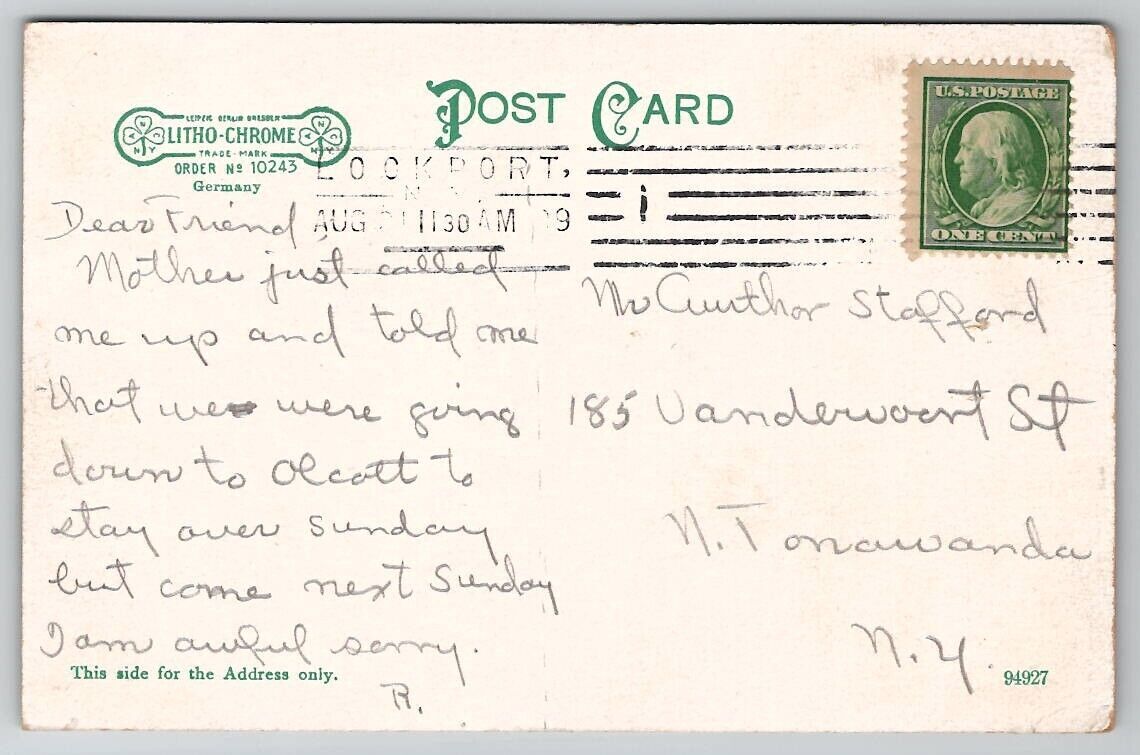 POST CARD
LEIPZIG BERLIN DRESDEN
LITHO-CHROME
TRADE-MARK
ORDER Nº 10243
Germany
U.S. POSTAGE
ONE CENT
LOCKPORT,
N.Y.
AUG 11 30 AM
1
Dear Friend
Mother just called
me up and told me
that we were going
down to Olcott to
stay over Sunday
but come next Sunday
I am awful sorry.
R.
Mr Aurthor Stafford
185 Vandervoort St
N. Tonawanda
N.Y.
This side for the Address only.
94927